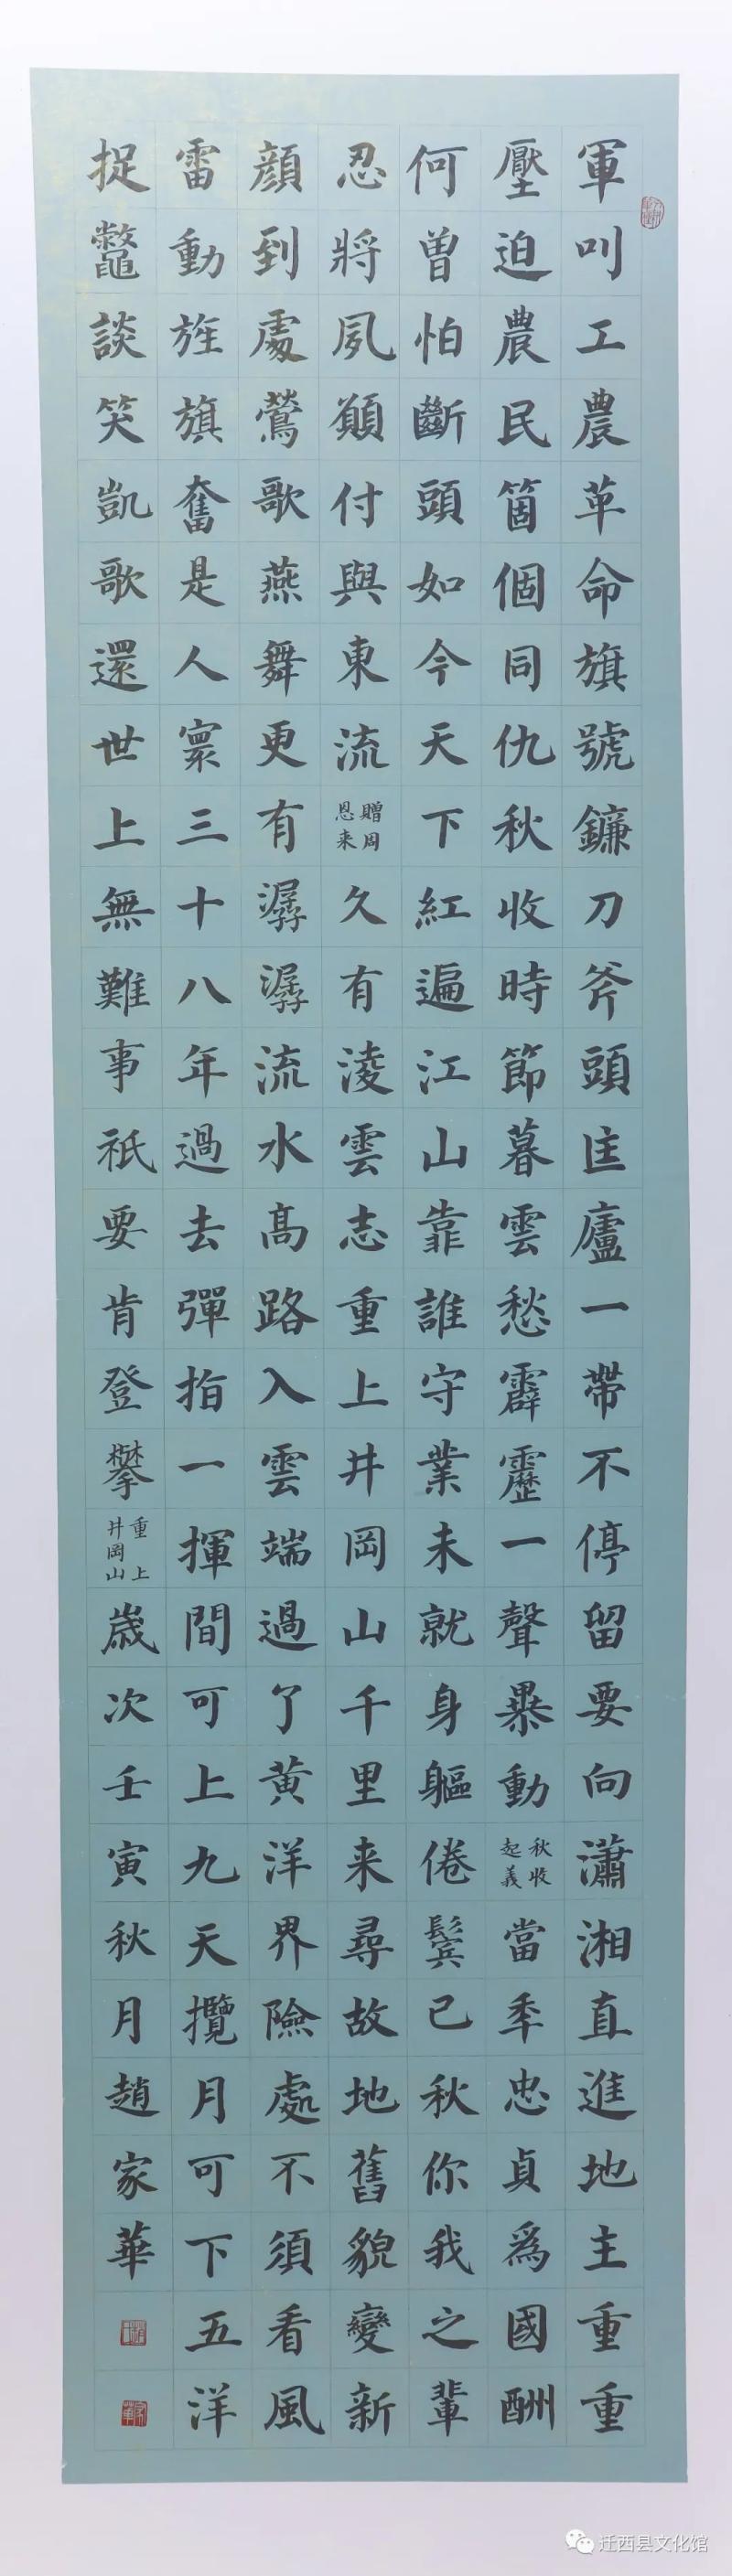 軍叫工農革命旗號鐮刀斧頭匡廬一帶不停留要向瀟湘直進地主重重
壓迫農民箇個同仇秋收時節暮雲愁霹靂一聲暴動秋收起義當季忠貞為國酬
何曾怕斷頭如今天下紅遍江山靠誰守業未就身軀倦鬢已秋你我之輩
忍將夙願付與東流贈周恩来久有淩雲志重上井岡山千里来尋故地舊貌變新
顏到處鶯歌燕舞更有潺潺流水高路入雲端過了黄洋界險處不須看風
雷動旌旗奮是人寰三十八年過去彈指一揮間可上九天攬月可下五洋
捉鼈談笑凱歌還世上無難事祇要肯登攀重上井岡山歲次壬寅秋月趙家華
迁西县文化馆